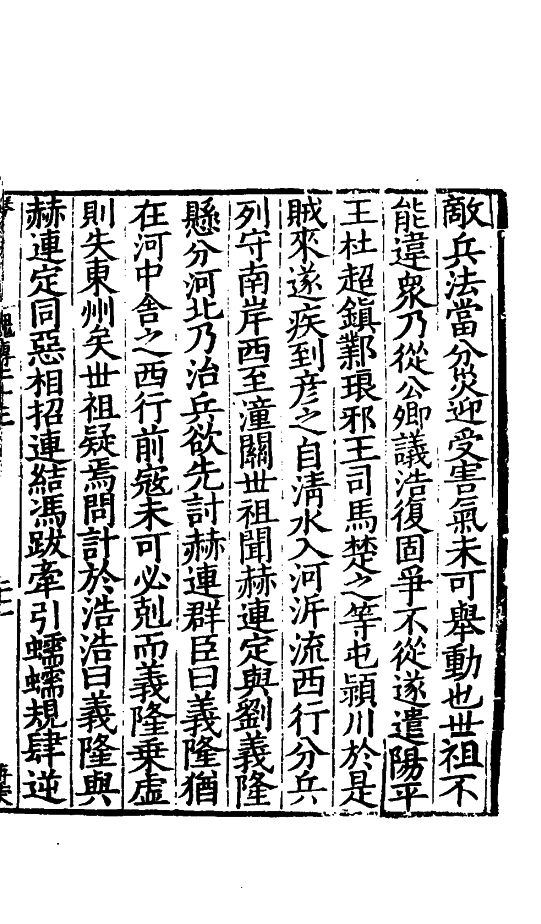 敵兵法當分災迎受害氣未可舉動也世祖不
能違眾乃從公卿議浩復固爭不從遂遣陽平
王杜超鎮鄴琅邪王司馬楚之等屯潁川於是
賊來遂疾到彥之自清水入河泝流西行分兵
列守南岸西至潼關世祖聞赫連定與劉義隆
懸分河北乃治兵欲先討赫連群臣曰義隆猶
在河中舍之西行前寇未可必剋而義隆乗虛
則失東州矣世祖疑焉問計於浩浩曰義隆與
赫連定同惡相招連結馮跋牽引蠕蠕規肆逆